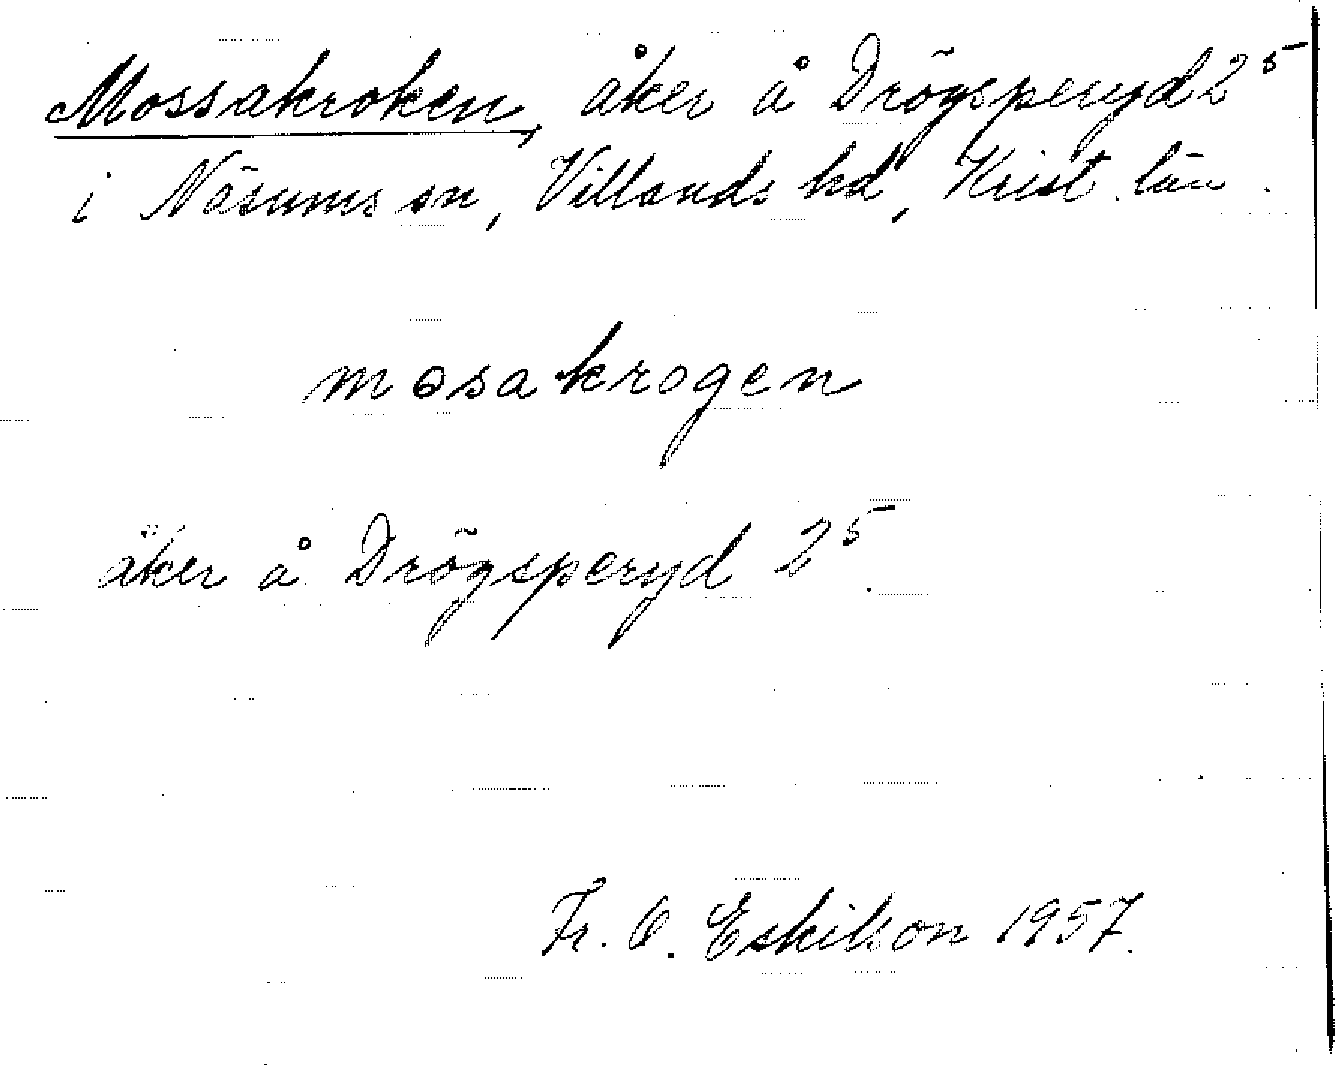 Mossakroken, åker å Drögsperyd 2⁵
i Näsums sn, Villands hd, Krist. län.
mɵsakrogen
åker å Drögsperyd 2⁵.
Fr. O. Eskilson 1957.